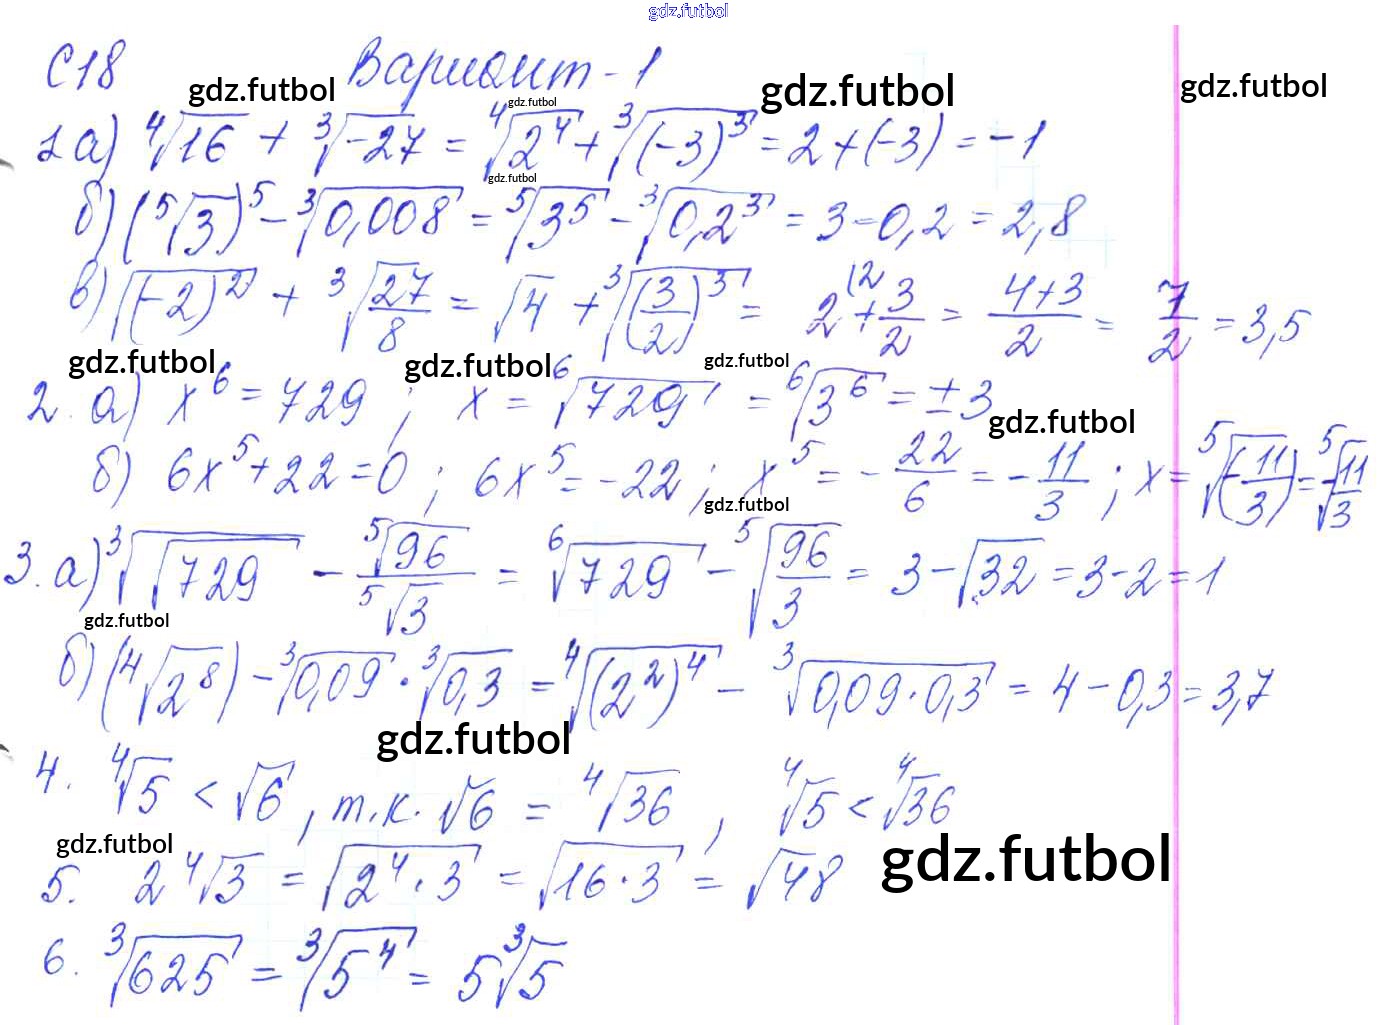 gdz.futbol
С18 Вариант - 1
gdz.futbol gdz.futbol gdz.futbol gdz.futbol
1 а) ⁴√16 + ³√-27 = ⁴√2⁴ + ³√(-3)³ = 2 + (-3) = -1
gdz.futbol
б) (⁵√3)⁵ - ³√0,008 = ⁵√3⁵ - ³√0,2³ = 3 - 0,2 = 2,8
в) √(-2)² + ³√27/8 = √4 + ³√(3/2)³ = 2 (2 + 3/2 = 4+3/2 = 7/2 = 3,5
gdz.futbol gdz.futbol gdz.futbol
2. а) x⁶ = 729 ; x = ⁶√729 = ⁶√3⁶ = ± 3
gdz.futbol
б) 6x⁵ + 22 = 0 ; 6x⁵ = -22 ; x⁵ = - 22/6 = - 11/3 ; x = ⁵√(-11/3) = ⁵√-11/3
gdz.futbol
3. а) ³√√729 - ⁵√96/⁵√3 = ⁶√729 - ⁵√96/3 = 3 - √32 = 3 - 2 = 1
gdz.futbol
б) (⁴√2⁸) - ³√0,09 · ³√0,3 = ⁴√(2²)⁴ - ³√0,09 · 0,3 = 4 - 0,3 = 3,7
gdz.futbol
4. ⁴√5 < √6 , т.к. √6 = ⁴√36 , ⁴√5 < ⁴√36
gdz.futbol gdz.futbol
5. 2 ⁴√3 = √2⁴ · 3 = √16 · 3 = √48
6. ³√625 = ³√5⁴ = 5 ³√5